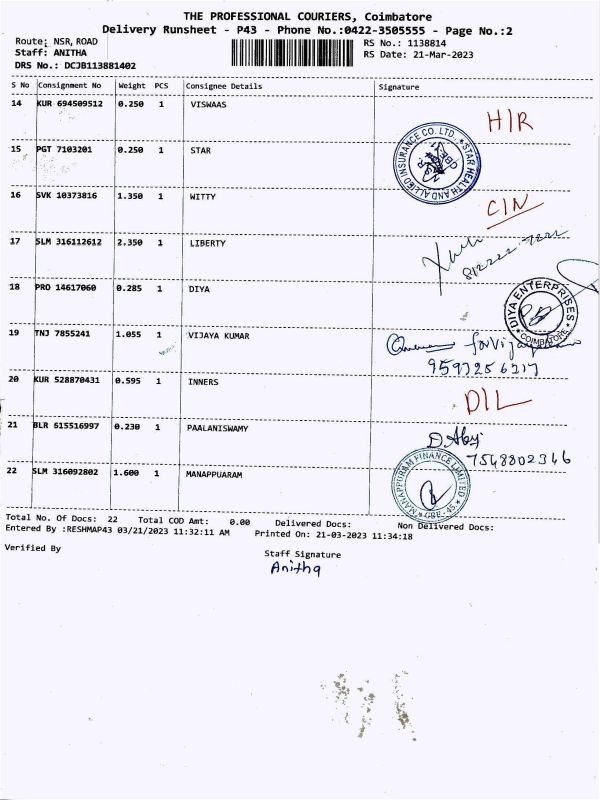 THE PROFESSIONAL COURIERS, Coimbatore
Delivery Runsheet - P43 - Phone No.:0422-3505555 - Page No.:2
Route: NSR,ROAD
Staff: ANITHA
DRS No.: DCJB113881402
RS No.: 1138814
RS Date: 21-Mar-2023
S No Consignment No Weight PCS Consignee Details Signature
14 KUR 694509512 0.250 1 VISWAAS HIR
15 PGT 7103201 0.250 1 STAR
STAR HEALTH AND ALLIED INSURANCE CO. LTD.
16 SVK 10373816 1.350 1 WITTY CIN
17 SLM 316112612 2.350 1 LIBERTY
18 PRO 14617060 0.285 1 DIYA
DIYA ENTERPRISES
COIMBATORE
19 TNJ 7855241 1.055 1 VIJAYA KUMAR
20 KUR 528870431 0.595 1 INNERS DIL
21 BLR 615516997 0.230 1 PAALANISWAMY
7548802346
22 SLM 316092802 1.600 1 MANAPPUARAM
MANAPPURAM FINANCE LIMITED
CBE - 45
Total No. Of Docs: 22 Total COD Amt: 0.00 Delivered Docs: Non Delivered Docs:
Entered By :RESHMAP43 03/21/2023 11:32:11 AM Printed On: 21-03-2023 11:34:18
Verified By
Staff Signature
Anitha